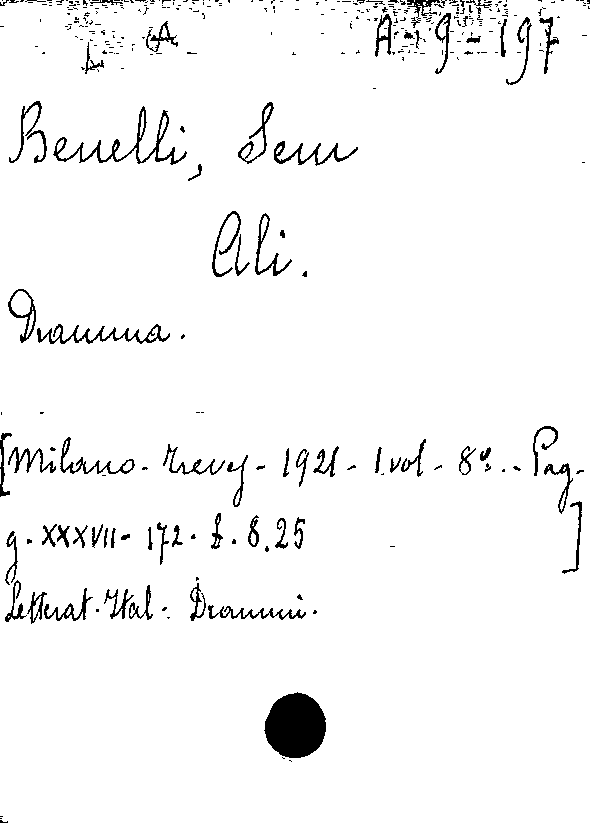 A-9-197
Benelli, Sem
Ali.
Dramma.
[Milano - Treves - 1921 - 1 vol - 8º. - Pag-
g. XXXVII - 172 - £. 8.25 ]
Letterat. Ital. Drammi.